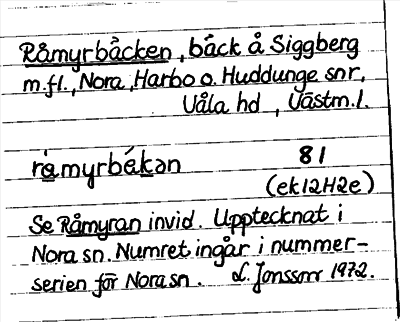 Råmyrbäcken, bäck å Siggberg
m.fl., Nora, Harbo o. Huddunge snr,
Våla hd, Västm.l.
råmyrbäkən 81
(ek12H2e)
Se Råmyran invid. Upptecknat i
Nora sn. Numret ingår i nummer-
serien för Nora sn. L. Jonsson 1972.